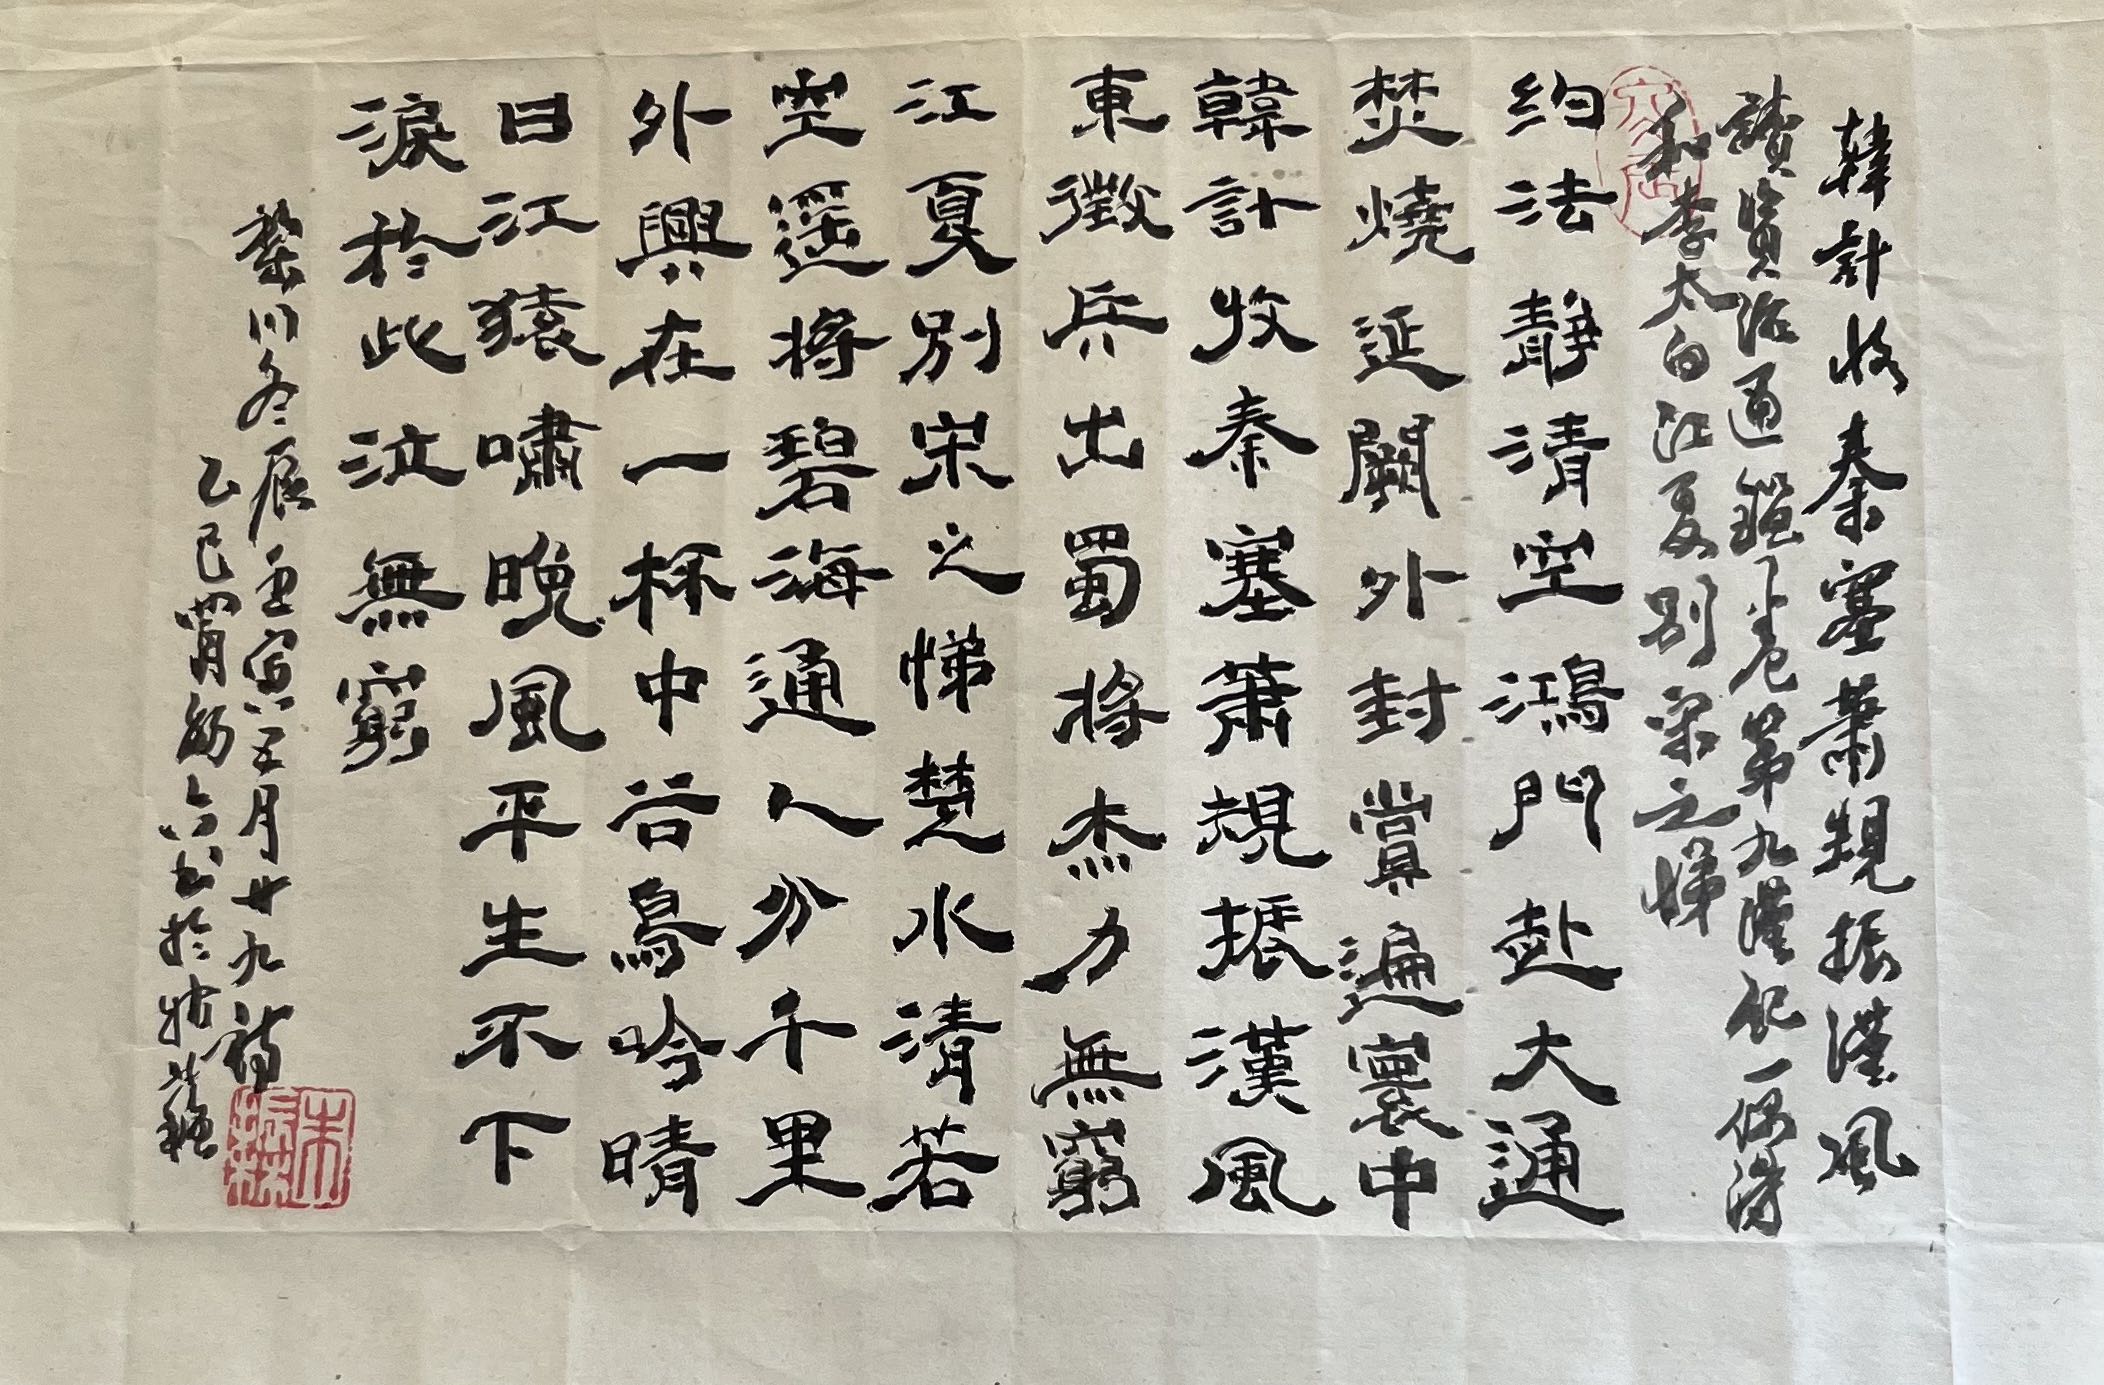 韓計收秦塞蕭規振漢風
讀資治通鑑卷第九漢紀一偶得
和李太白江夏別宋之悌
約法靜清空鴻門赴大通
焚燒延闕外封賞遍寰中
韓計收秦塞蕭規振漢風
東徵兵出蜀將杰力無窮
江夏別宋之悌楚水清若
空遥將碧海通人分千里
外興在一杯中谷鳥吟晴
日江猿嘯晚風平生不下
淚於此泣無窮
黎川冬辰壬寅五月廿九詩
乙巳六書於